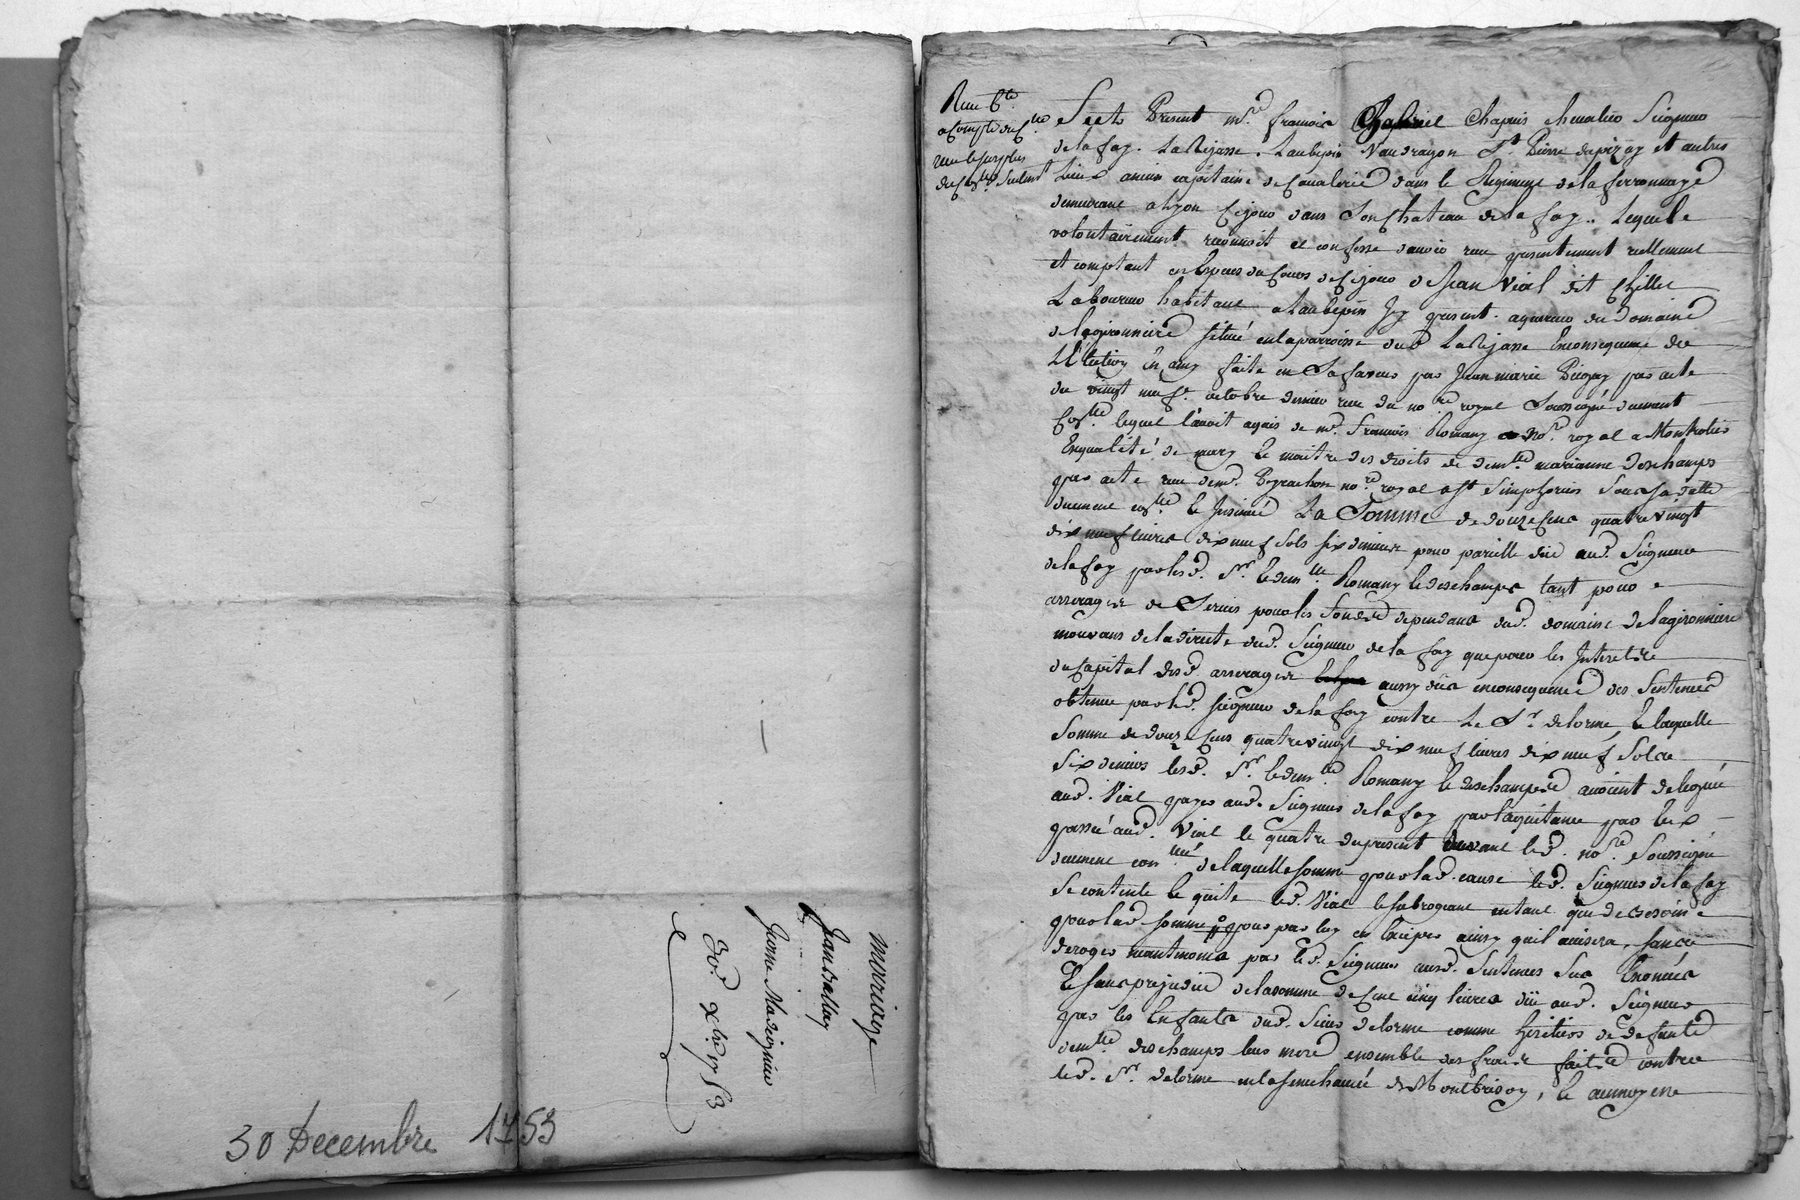 mariage
Jean Vallay
Jeanne Madignier
30.e Xbre 1753
30 Decembre 1753
Reçu C.té
a Compte du C.lle
du Con.lle Seulem.t
Feet Present m.re francois Chapuis chevalier Seigneur
de la fay. La Rajasse. Laubepin Vaudragon S.t Pierre et autres
Lieux ancien capitaine de Cavalerie dans le Regiment de la ferronnaye
demeurant a Lyon Cejour dans Son Chateau de la fay. Lequel
volontairement reconnoit et confesse davoir reçu presentement reellement
et comptant en Especes du Cours de Cejour de Jean Vial dit Chillet
Laboureur habitant a Laubepin Icy present. aquereur du Domaine
de lagironniere situé en la parroisse dud. La Rajasse En consequence de
L'Election En amy faite en Sa faveur par Jean marie Pupay par acte
du vingt neuf. octobre dernier reçu du no.re royal Soussigné duement
Con.llé lequel l'avoit aquis de m.e francois Romany no.re royal a Montrotier
En qualité de mary Et maitre des droits de dem.lle marianne Deschamps
par acte reçu de m.e no.re royal a St Simphorien Sous Sa datte
duement con.llé Et Insinué La Somme de douze Cens quatre vingt
dix neuf livres dix neuf Sols six deniers pour pareille düe aud. Seigneur
de la fay par lesd. S.r Et dem.lle Romany Et deschamps tant pour
arrerages de Servis pour les fonds dependans dud. domaine de lagironniere
mouvans de la directe dud. Seigneur de la fay que pour les Interets
du Capital desd. arrerages aussy düs en consequence des Sentences
obtenue par led. Seigneur de la fay contre Le S.r delorme, Et laquelle
Somme de douze Cens quatre vingt dix neuf livres dix neuf Sols
Six deniers lesd. S.r Et dem.lle Romany Et deschamps avoient delegué
aud. Vial payer aud. Seigneur de la fay par la quitance par Eux
passée aud. Vial le quatre du present devant led. no.re Soussigné
duement con.llée de laquelle somme pour lad. cause led. Seigneur de la fay
Se contente Et quite led. Vial le subrogeant entant que de besoin
pour lad. somme pour par luy en Etre pris ainsy quil avisera, sans
deroger neantmoins par led. Seigneur auxd. Sentences Sus Enoncées
Et sans prejudice de la somme de Cent cinq livres düe aud. Seigneur
par les Enfants dud. Sieur delorme comme heritiers de defunte
dem.lle deschamps leur mere ensemble des frais faits contre
led. S.r delorme en la Senechaucée de Montbrison, Et au moyen